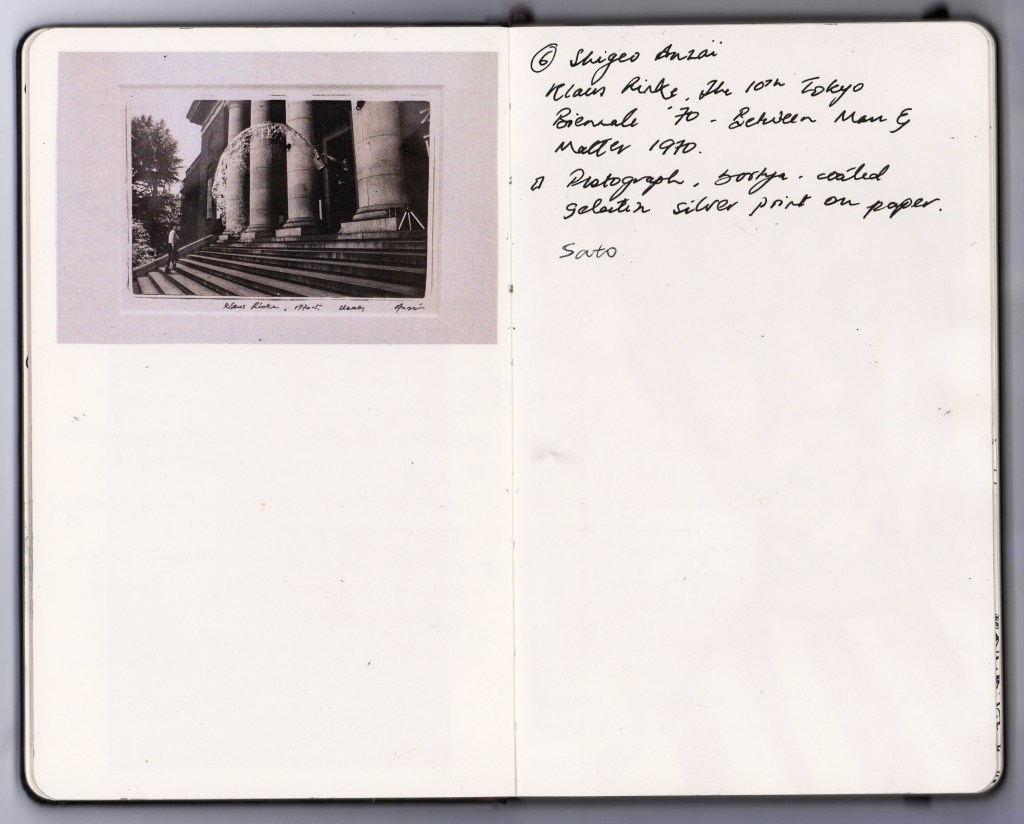 Klaus Rinke, 1970.5. Anzaï
⑥ Shigeo Anzaï
Klaus Rinke, The 10th Tokyo
Biennale '70 - Between Man &
Matter 1970.
Photograph, - coated
gelatin silver print on paper.
Sato